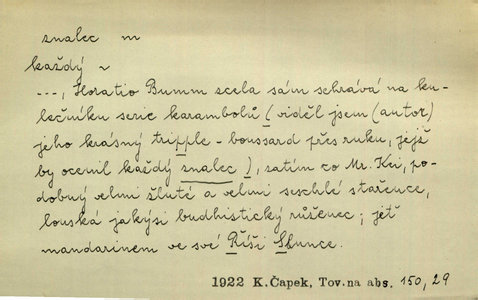 znalec m
každý ~
---, Horatio Bumm zcela sám schrává na ku-
lečníku serie karambolů (viděl jsem (autor)
jeho krásný tripple-boussard přes ruku, jejž
by ocenil každý znalec), zatím co Mr. Kei, po-
dobný velmi žluté a velmi seschlé stařence,
louská jakýsi budhistický růženec; jeť
mandarinem ve své Říši Slunce.
1922 K.Čapek, Tov.na abs. 150, 29